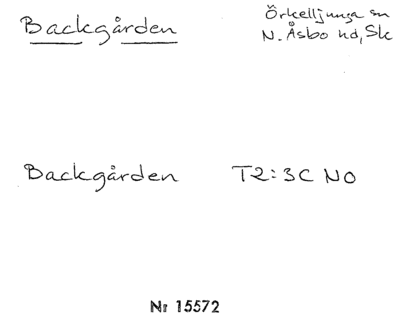 Backgården
Örkelljunga sn
N. Åsbo hd, Sk
Backgården T2:3C NO
Nr 15572